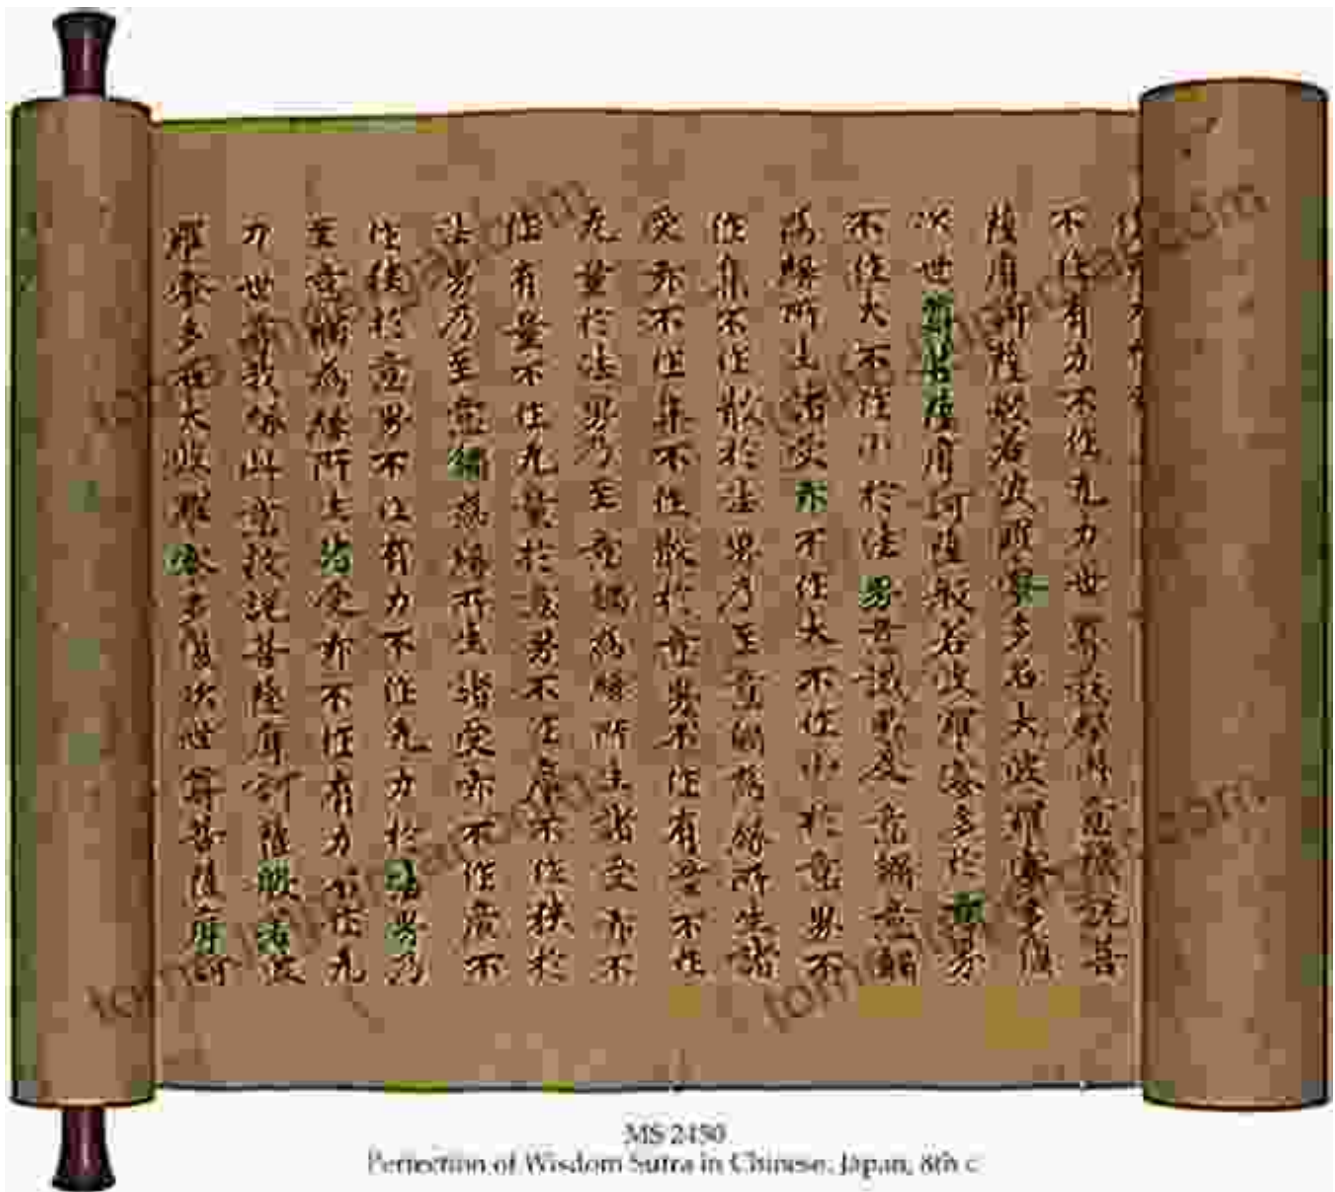 不作有力不作无力世尊我緣此意故說菩
薩摩訶薩般若波羅蜜多名大波羅蜜多復
次世尊若菩薩摩訶薩般若波羅蜜多於意界
不作大不作小於法界意識界及意觸意觸
為緣所生諸受亦不作大不作小於意界不
作集不作散於法界乃至意觸為緣所生諸
受亦不作集不作散於意界不作有量不作
无量於法界乃至意觸為緣所生諸受亦不
作有量不作无量於意界不作廣不作狹於
法界乃至意觸為緣所生諸受亦不作廣不
作狹於意界不作有力不作无力於法界乃
至意觸為緣所生諸受亦不作有力不作无
力世尊我緣此意故說菩薩摩訶薩般若波
羅蜜多名大波羅蜜多復次世尊若菩薩摩訶
MS 2450
Perfection of Wisdom Sutra in Chinese, Japan, 8th c